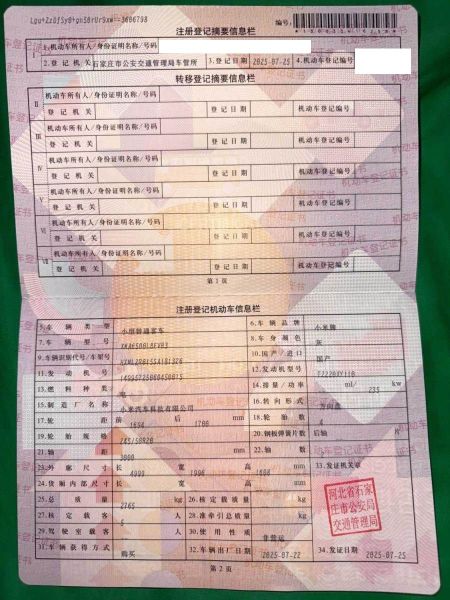 注册登记摘要信息栏
1.机动车所有人/身份证明名称/号码
2.登记机关 石家庄市公安交通管理局车管所 3.登记日期 2025-07-25 4.机动车登记编号
转移登记摘要信息栏
II 机动车所有人/身份证明名称/号码
登记机关 登记日期 机动车登记编号
III 机动车所有人/身份证明名称/号码
登记机关 登记日期 机动车登记编号
IV 机动车所有人/身份证明名称/号码
登记机关 登记日期 机动车登记编号
V 机动车所有人/身份证明名称/号码
登记机关 登记日期 机动车登记编号
VI 机动车所有人/身份证明名称/号码
登记机关 登记日期 机动车登记编号
VII 机动车所有人/身份证明名称/号码
登记机关 登记日期 机动车登记编号
第1页
注册登记机动车信息栏
5.车辆类型 小型普通客车 6.车辆品牌 小米牌
7.车辆型号 8.车身颜色 灰
9.车辆识别代号/车架号 10.国产/进口 国产
11.发动机号 12.发动机型号
13.燃料种类 电 14.排量/功率 ml/ 235 kw
15.制造厂名称 小米汽车科技有限公司 16.转向形式 方向盘
17.轮距 前 1694 后 1700 mm 18.轮胎数 4
19.轮胎规格 245/50R20 20.钢板弹簧片数 后轴 片
21.轴距 3000 mm 22.轴数 2
23.外廓尺寸 长 4999 宽 1996 高 1608 mm 33.发证机关章
24.货厢内部尺寸 长 宽 高 mm
25.总质量 2765 kg 26.核定载质量 kg
27.核定载客 5 人 28.准牵引总质量 kg
29.驾驶室载客 人 30.使用性质 非营运
31.车辆获得方式 购买 32.车辆出厂日期 2025-07-22 34.发证日期 2025-07-25
河北省石家
庄市公安局
交通管理局
第2页